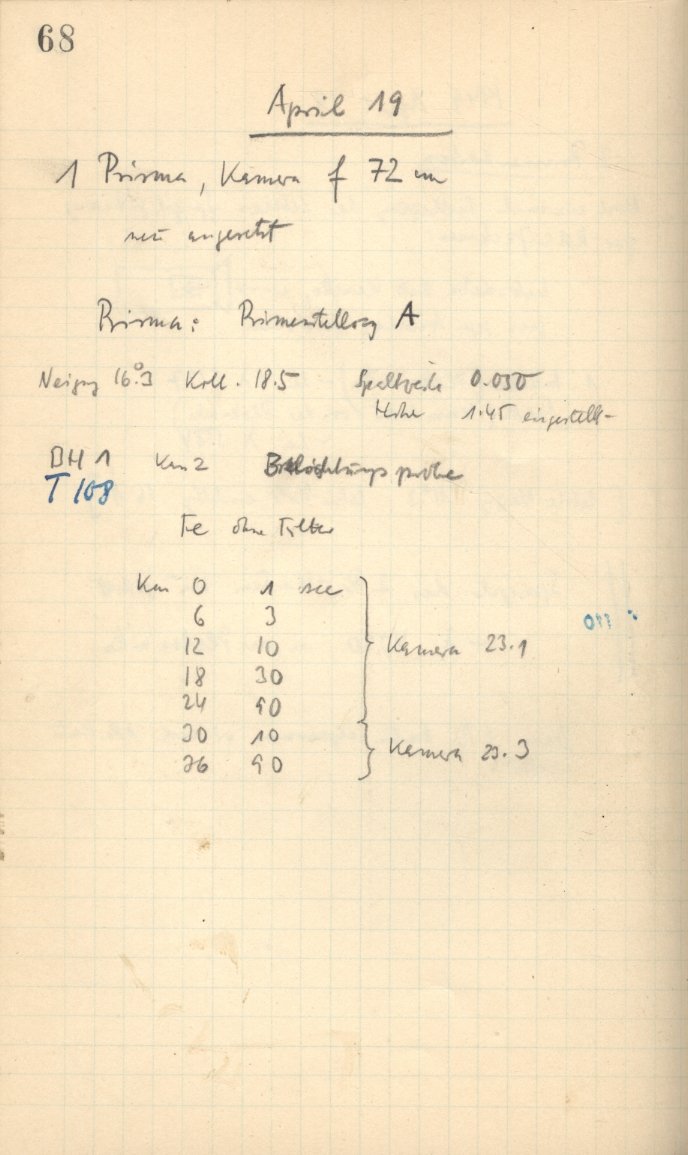 68
April 19
1 Prisma, Kamera f 72 cm
neu angesetzt
Prisma: Prismenstellung A
Neigung 16°.3 Koll. 18.5 Spaltweite 0.030
Höhe 1.45 eingestellt
BH 1 Km 2 Belichtungsprobe
T 108
Fe ohne Filter
Km 0 1 sec
6 3
12 10
18 30
24 90
Kamera 23.1
30 10
36 90
Kamera 23.3